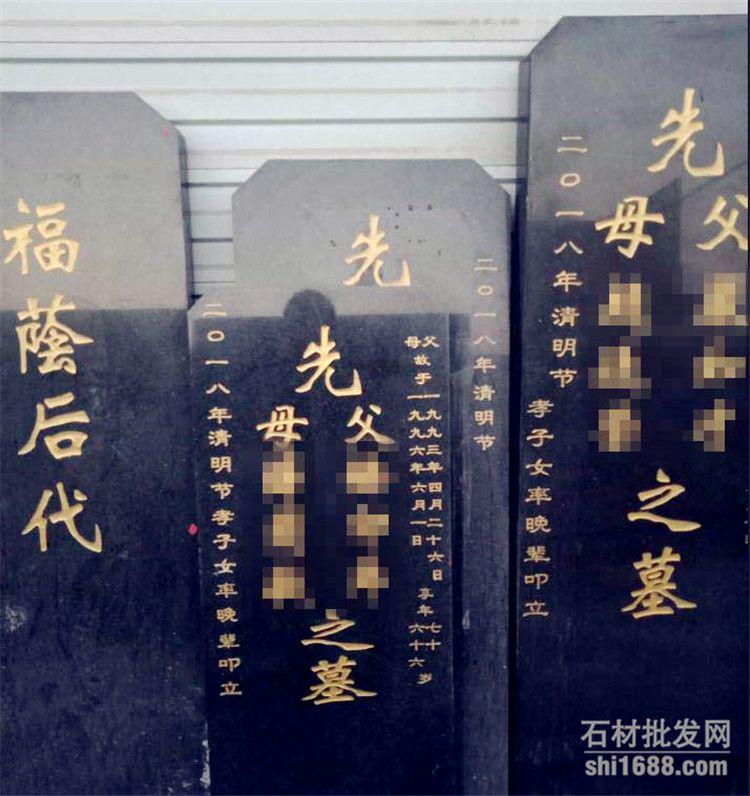 福蔭后代
先
二〇一八年清明节
父母故于
一九九三年四月二十六日
一九九六年六月一日
享年
七十
六十六
岁
先
父
母
之墓
二〇一八年清明节孝子女率晚辈叩立
先
父
母
之墓
二〇一八年清明节
孝子女率晚辈叩立
石材批发网
shi1688.com